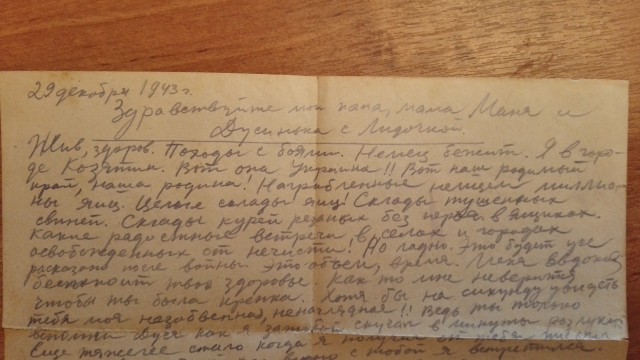 29 декабря 1943 г.
Здравствуйте мои папа, мама Маня и
Дусинька с Лидочкой.
Жив, здоров. Походы с боями. Немец бежит. Я в горо-
де Козятин. Вот она Украина!! Вот наш родимый
край, наша родина! Награбленные немцем миллио-
ны яиц. Целые склады яиц! Склады тушенных
свиней. Склады курей резаных без перьев в ящиках.
Какие радостные встречи в селах и городах
освобожденных от нечисти! Но ладно. Это будет уже
расказано после войны. Это объем, время. Меня
беспокоит твое здоровье. Как то мне неверится
чтобы ты была крепка. Хотя бы на секунду увидеть
тебя моя незабвенная, ненаглядная!! Ведь ты только
вспомни Дуся как я скучал в минуты разлуки
Еще тяжелее стало когда я получил от тебя
с тобой я встретился